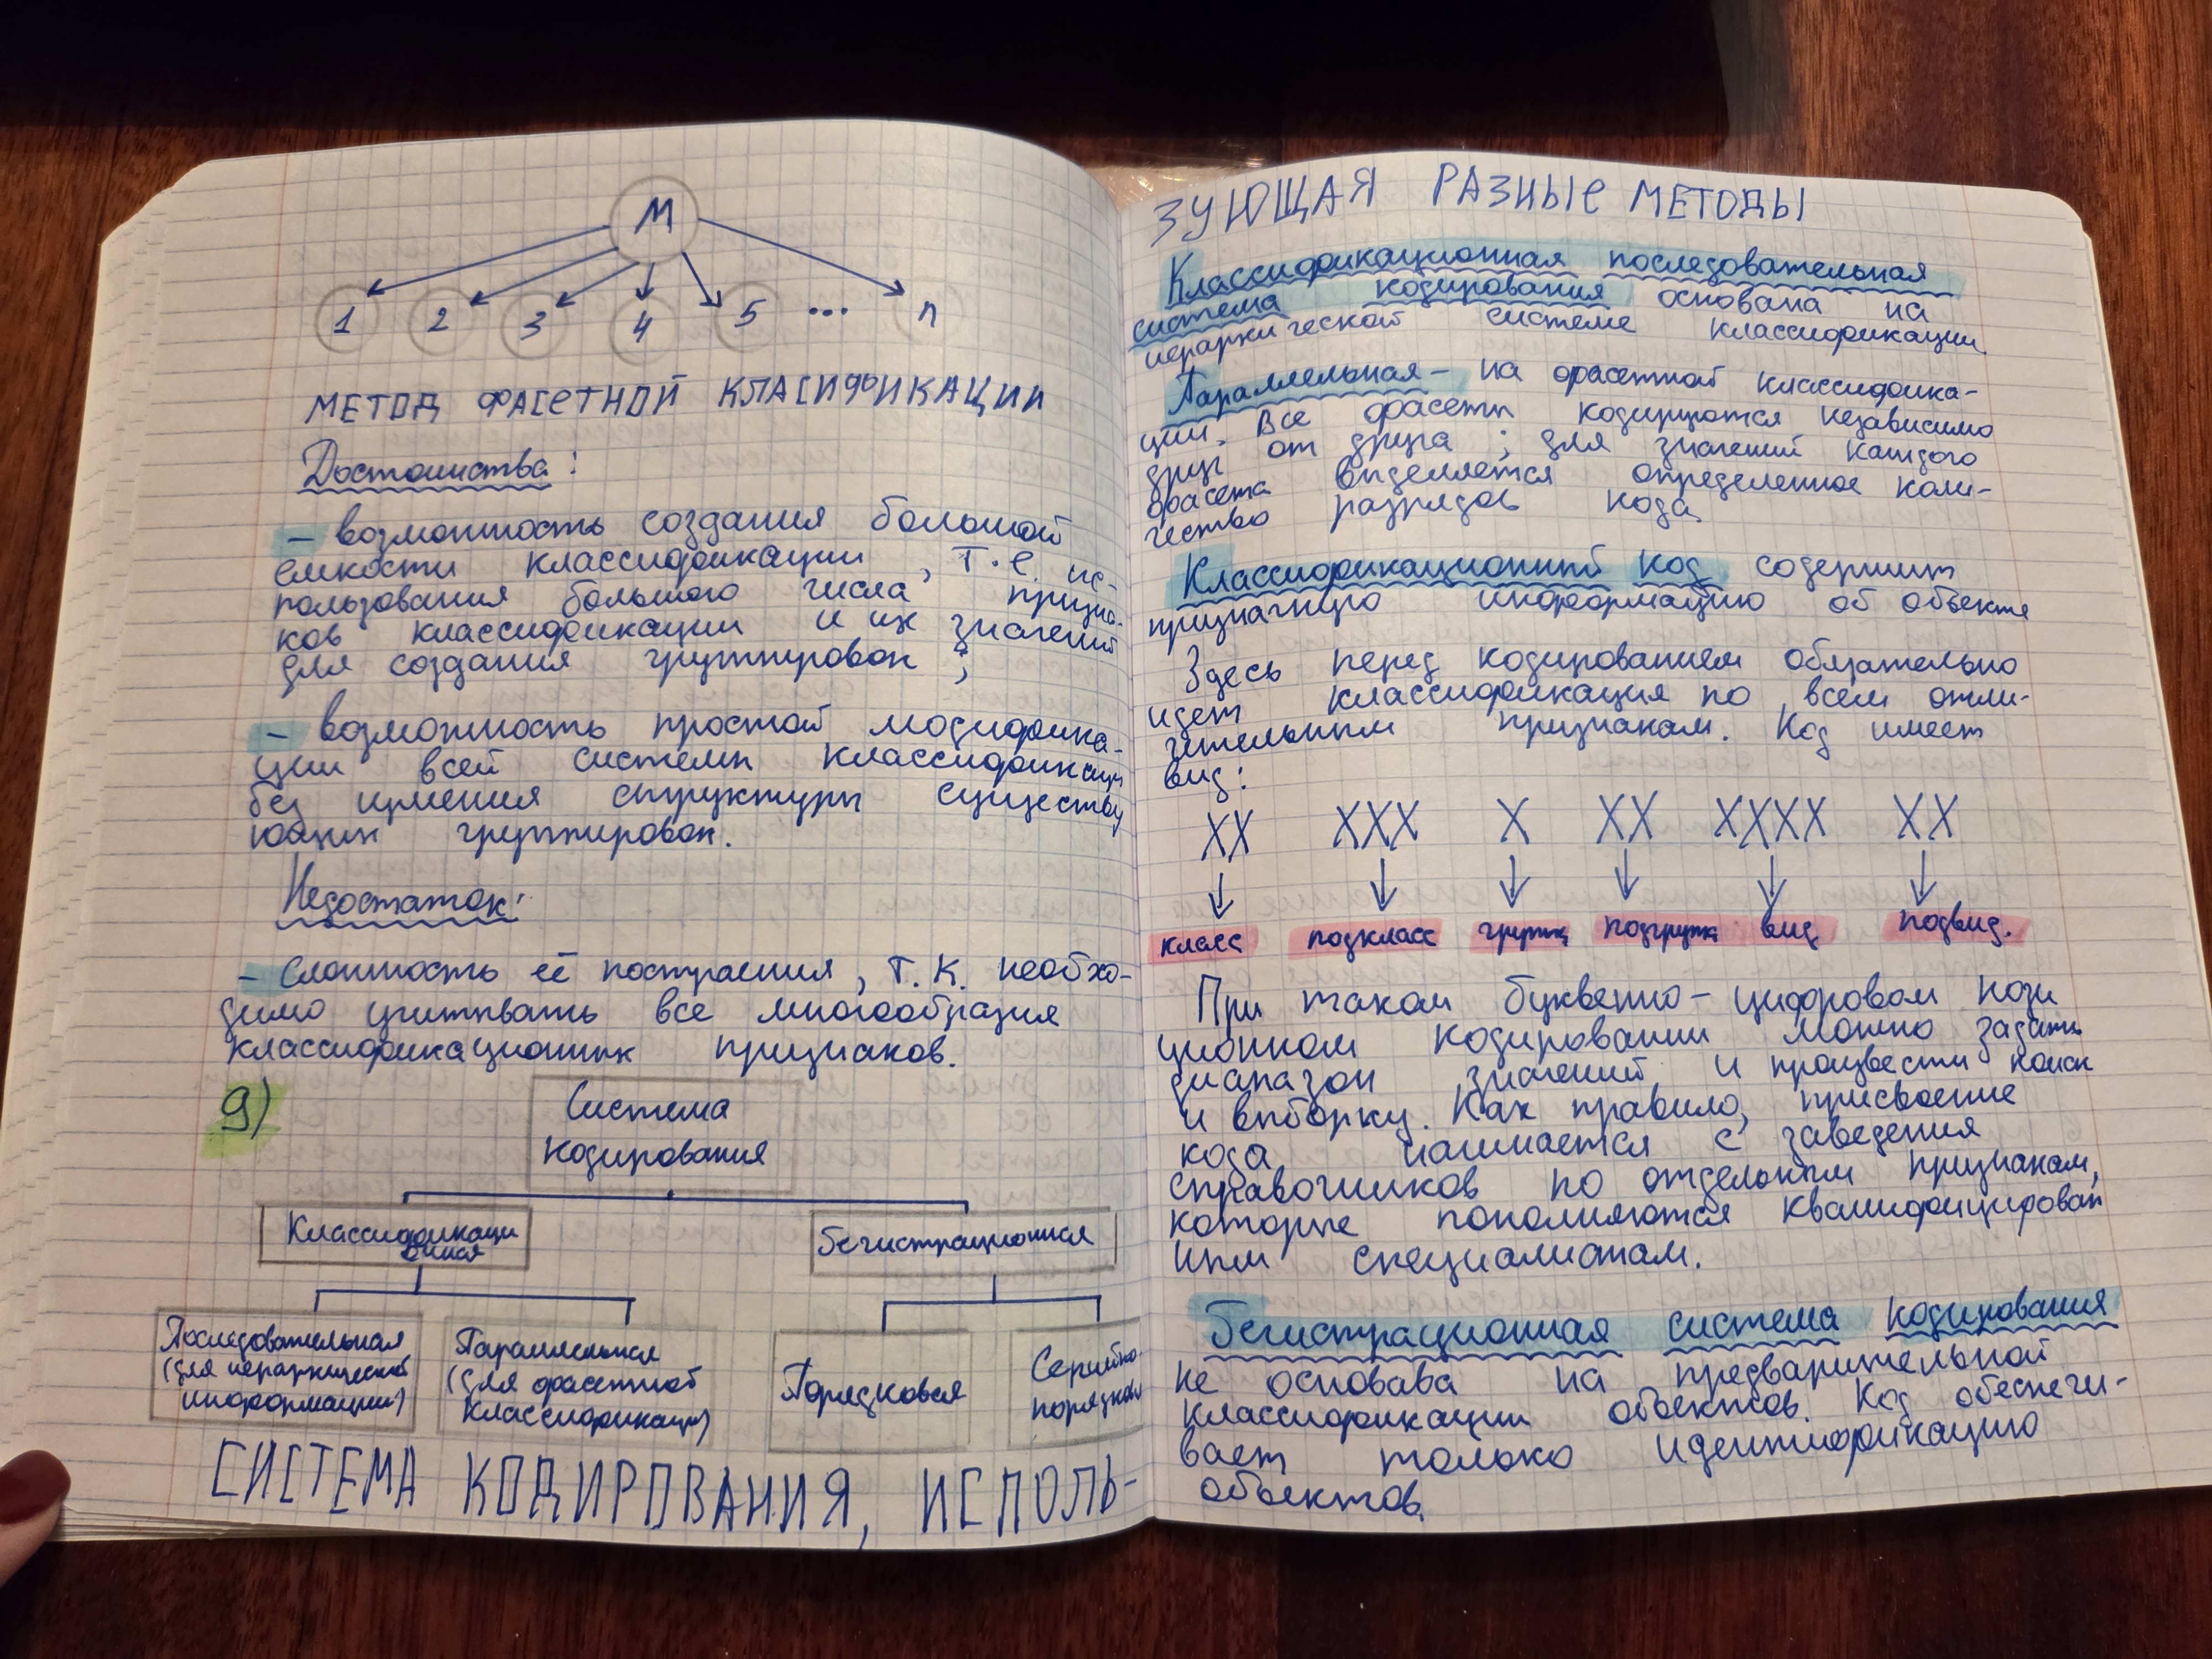 М
1 2 3 4 5 ... n
МЕТОД ФАСЕТНОЙ КЛАСИФИКАЦИИ
Достоинства:
– возможность создания большой
емкости классификации, т.е. ис-
пользования большого числа призна-
ков классификации и их значений
для создания группировок;
– возможность простой модифика-
ции всей системы классификации
без изменения структуры существу
ющих группировок.
Недостаток:
– сложность её построения, т.к. необхо-
димо учитывать все многообразия
классификационных признаков.
9)
Система
кодирования
Классификаци
онная
Регистрационная
Последовательная
(для иерархической
информации)
Параллельная
(для фасетной
классификации)
Порядковая
Серийно-
порядковая
СИСТЕМА КОДИРОВАНИЯ, ИСПОЛЬ-
ЗУЮЩАЯ РАЗНЫЕ МЕТОДЫ
Классификационная последовательная
система кодирования основана на
иерархической системе классификации.
Параллельная – на фасетной классифика-
ции. Все фасеты кодируются независимо
друг от друга; для значений каждого
фасета выделяется определенное коли-
чество разрядов кода.
Классификационный код содержит
призначную информацию об объекте
Здесь перед кодированием обязательно
идет классификация по всем отли-
чительным признакам. Код имеет
вид:
XX XXX X XX XXXX XX
класс подкласс группа подгруппа вид подвид.
При таком буквенно-цифровом пози
ционном кодировании можно задать
диапазон значений и произвести поиск
и выборку. Как правило, присвоение
кода начинается с заведения
справочников по отдельным признакам,
которые пополняются квалифицирован
ными специалистам.
Регистрационная система кодирования
не основава на предварительной
классификации объектов. Код обеспечи-
вает только идентификацию
объектов.